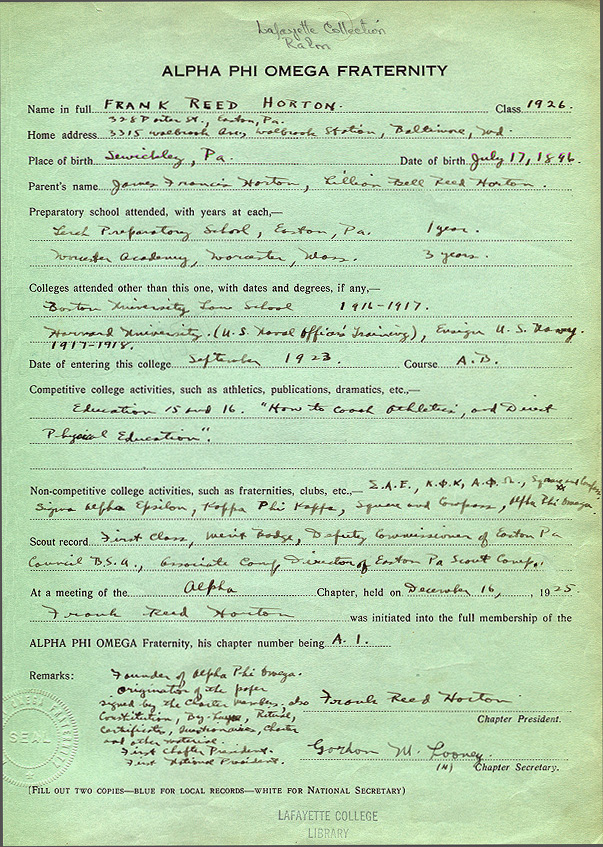 Lafayette Collection
ALPHA PHI OMEGA FRATERNITY
Name in full FRANK REED HORTON. Class 1926.
328 Porter St., Easton, Pa.
Home address 3315 Walbrook Ave, Walbrook Station, Baltimore, Md.
Place of birth Sewickley, Pa. Date of birth July 17, 1896.
Parent's name James Francis Horton, Lillian Bell Reed Horton.
Preparatory school attended, with years at each,—
Lerch Preparatory School, Easton, Pa. 1 year.
Worcester Academy, Worcester, Mass. 3 years.
Colleges attended other than this one, with dates and degrees, if any,—
Boston University Law School 1916-1917.
Harvard University. (U.S. Naval Officers Training), Ensign U.S. Navy.
1917-1918.
Date of entering this college September 1923. Course A.B.
Competitive college activities, such as athletics, publications, dramatics, etc.,—
Education 15 and 16. "How to Coach Athletics, and Direct
Physical Education".
Non-competitive college activities, such as fraternities, clubs, etc.,— Σ.A.E., K.Φ.K., A.Φ.Ω., Square and Compass
Sigma Alpha Epsilon, Kappa Phi Kappa, Square and Compass, Alpha Phi Omega.
Scout record First Class, Merit Badge, Deputy Commissioner of Easton Pa
Council B.S.A., Associate Camp Director of Easton Pa Scout Camp.
At a meeting of the Alpha Chapter, held on December 16, , 1925.
Frank Reed Horton was initiated into the full membership of the
ALPHA PHI OMEGA Fraternity, his chapter number being A. 1.
Remarks: Founder of Alpha Phi Omega.
Originator of the paper
signed by the Charter members, also
Constitution, By-Laws, Ritual,
Certificates, Questionnaires, Charter
and other material.
First Chapter President.
First National President.
Frank Reed Horton
Chapter President.
Gordon M. Looney
(N) Chapter Secretary.
SEAL
(FILL OUT TWO COPIES—BLUE FOR LOCAL RECORDS—WHITE FOR NATIONAL SECRETARY)
LAFAYETTE COLLEGE
LIBRARY